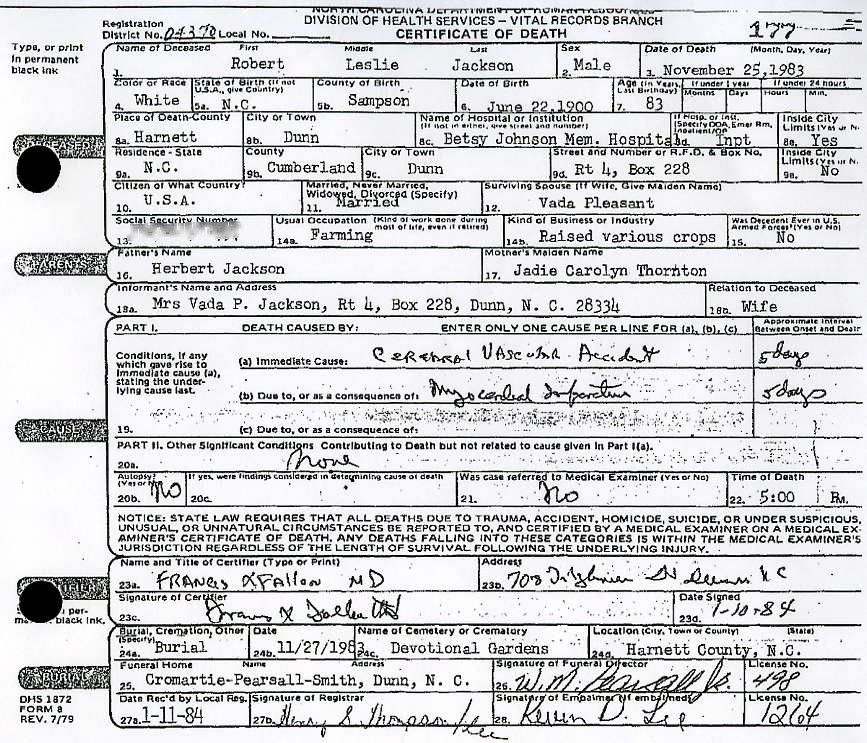 NORTH CAROLINA DEPARTMENT OF HUMAN RESOURCES
DIVISION OF HEALTH SERVICES – VITAL RECORDS BRANCH
CERTIFICATE OF DEATH
Registration
District No. 04370 Local No.
Type, or print
in permanent
black ink
Name of Deceased First Middle Last Sex Date of Death (Month, Day, Year)
1. Robert Leslie Jackson 2. Male 3. November 25,1983
Color or Race State of Birth (If not U.S.A., give Country) County of Birth Date of Birth Age (In Years Last Birthday) If under 1 year Months Days If under 24 hours Hours Min.
4. White 5a. N.C. 5b. Sampson 6. June 22,1900 7. 83
Place of Death-County City or Town Name of Hospital or Institution (If not in either, give street and number) If Hosp. or Inst. (Specify DOA, Emer Rm, Inpatient/OP Inside City Limits (Yes or No)
8a. Harnett 8b. Dunn 8c. Betsy Johnson Mem. Hospital 8d. Inpt 8e. Yes
Residence - State County City or Town Street and Number or R.F.D. & Box No. Inside City Limits (Yes or No)
9a. N.C. 9b. Cumberland 9c. Dunn 9d. Rt 4, Box 228 9e. No
Citizen of What Country? Married, Never Married, Widowed, Divorced (Specify) Surviving Spouse (If Wife, Give Maiden Name)
10. U.S.A. 11. Married 12. Vada Pleasant
Social Security Number Usual Occupation (Kind of work done during most of life, even if retired) Kind of Business or Industry Was Decedent Ever in U.S. Armed Forces? (Yes or No)
13. 14a. Farming 14b. Raised various crops 15. No
PARENTS
Father's Name Mother's Maiden Name
16. Herbert Jackson 17. Jadie Carolyn Thornton
Informant's Name and Address Relation to Deceased
18a. Mrs Vada P. Jackson, Rt 4, Box 228, Dunn, N. C. 28334 18b. Wife
PART I. DEATH CAUSED BY: ENTER ONLY ONE CAUSE PER LINE FOR (a), (b), (c) Approximate Interval Between Onset and Death
Conditions, if any
which gave rise to
Immediate cause (a),
stating the under-
lying cause last.
(a) Immediate Cause: Cerebral Vascular Accident 5 days
(b) Due to, or as a consequence of: Myocardial Infarction 5 days
CAUSE
19. (c) Due to, or as a consequence of:
PART II. Other Significant Conditions Contributing to Death but not related to cause given in Part I(a).
20a. None
Autopsy? (Yes or No) If yes, were findings considered in determining cause of death Was case referred to Medical Examiner (Yes or No) Time of Death
20b. No 20c. 21. No 22. 5:00 P.M.
NOTICE: STATE LAW REQUIRES THAT ALL DEATHS DUE TO TRAUMA, ACCIDENT, HOMICIDE, SUICIDE, OR UNDER SUSPICIOUS,
UNUSUAL, OR UNNATURAL CIRCUMSTANCES BE REPORTED TO, AND CERTIFIED BY A MEDICAL EXAMINER ON A MEDICAL EX-
AMINER'S CERTIFICATE OF DEATH. ANY DEATHS FALLING INTO THESE CATEGORIES IS WITHIN THE MEDICAL EXAMINER'S
JURISDICTION REGARDLESS OF THE LENGTH OF SURVIVAL FOLLOWING THE UNDERLYING INJURY.
Name and Title of Certifier (Type or Print) Address
23a. Francis X Fallon MD 23b. 708 Dunn NC
Signature of Certifier Date Signed
23c. Francis X Fallon MD 23d. 1-10-84
black ink.
Burial, Cremation, Other (Specify) Date Name of Cemetery or Crematory Location (City, Town or County) (State)
24a. Burial 24b. 11/27/1983 24c. Devotional Gardens 24d. Harnett County, N.C.
BURIAL
Funeral Home Name Address Signature of Funeral Director License No.
25. Cromartie-Pearsall-Smith, Dunn, N. C. 26. W. M. Pearsall Jr. 498
DHS 1872
FORM 8
REV. 7/79
Date Rec'd by Local Reg. Signature of Registrar Signature of Embalmer (If embalmed) License No.
27a. 1-11-84 27b. Henry S. Thompson/Lee 28. D. Lee 1264